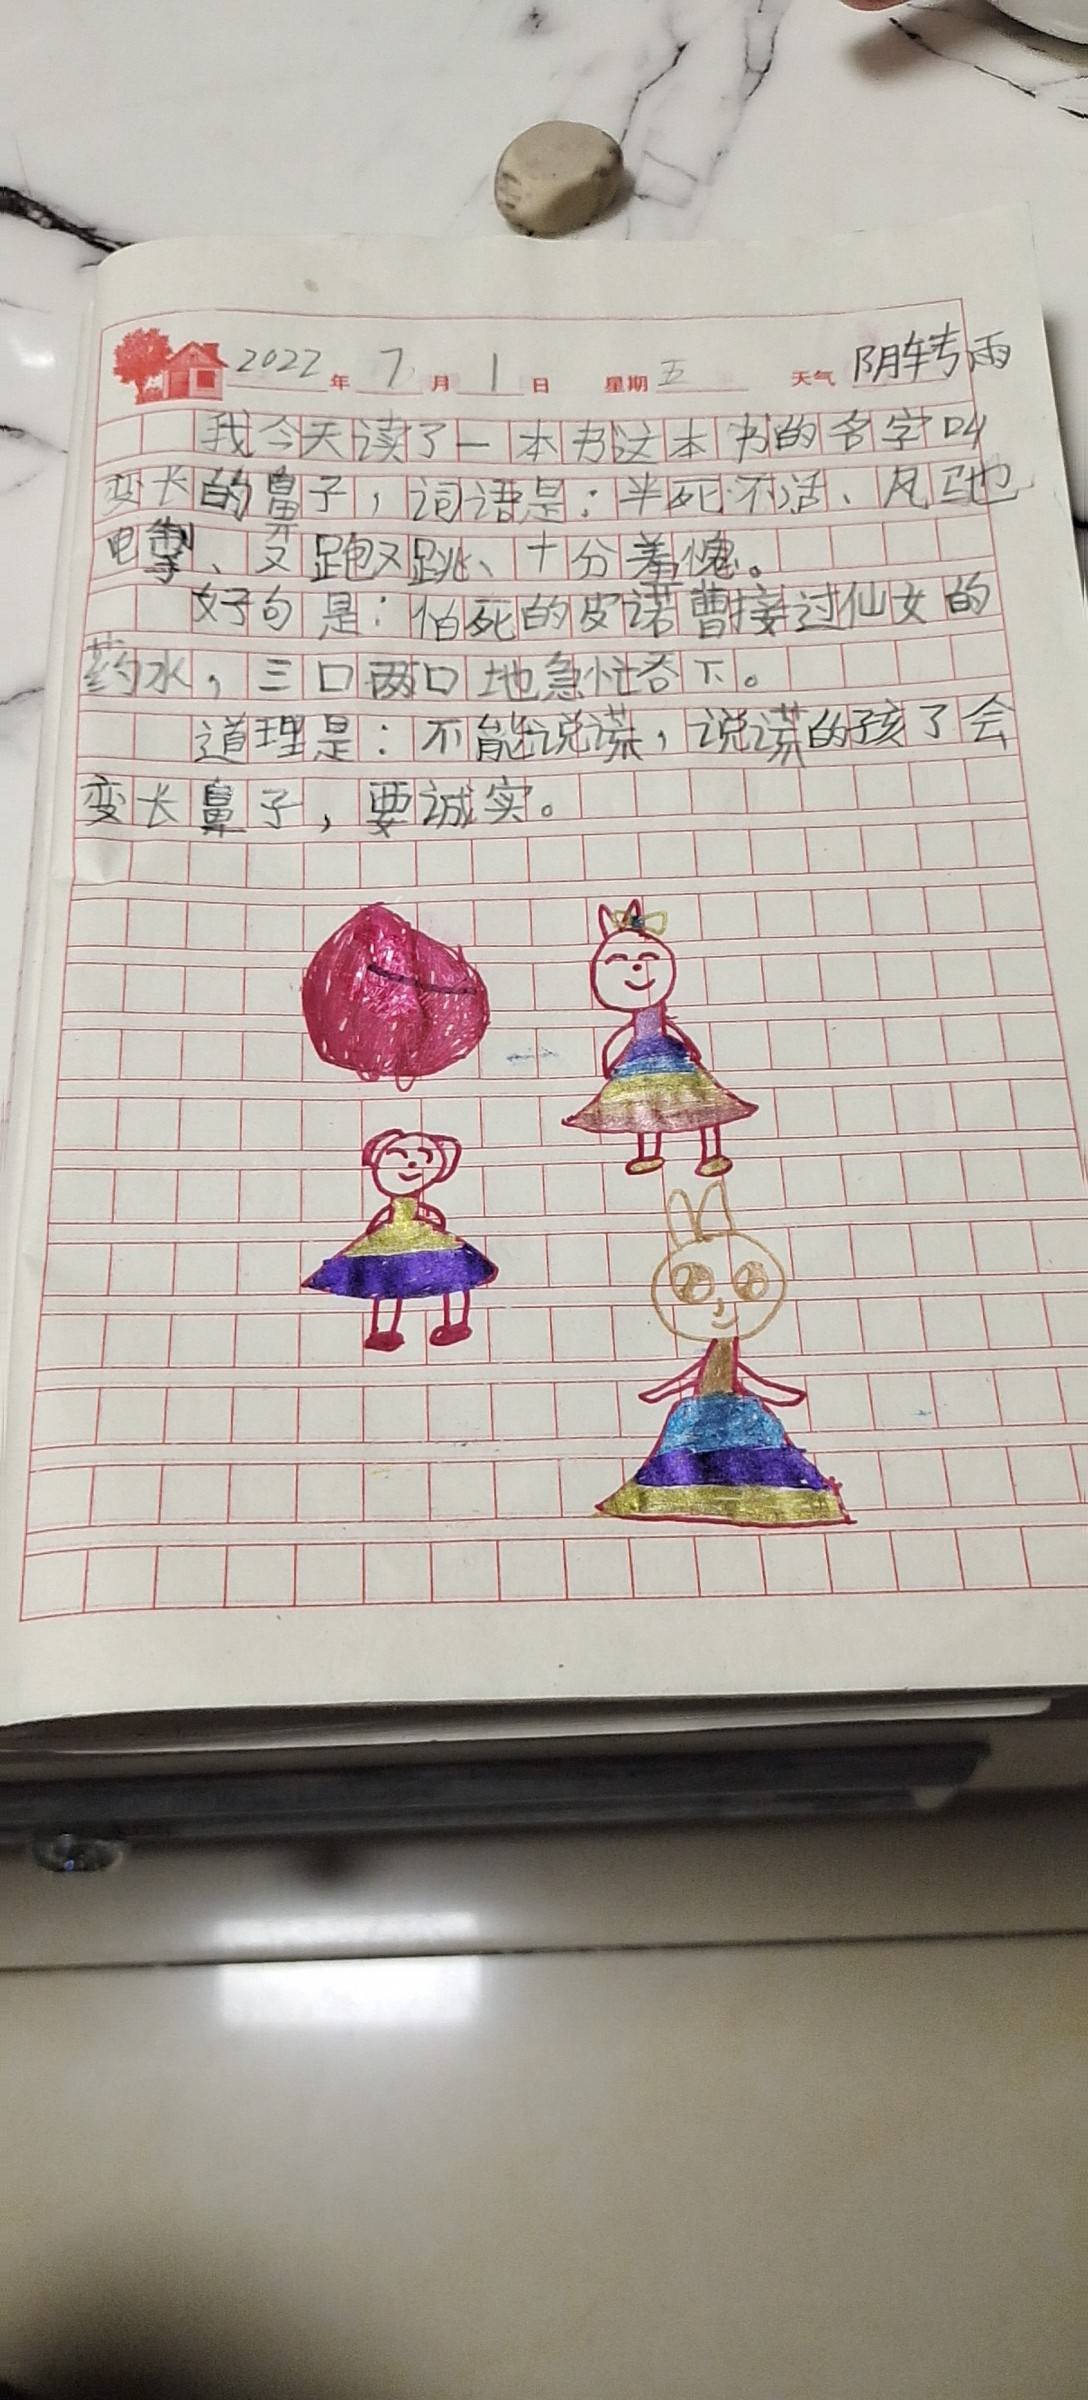 2022年7月1日 星期五 天气 阴转雨
我今天读了一本书这本书的名字叫
变长的鼻子，词语是：半死不活、风驰
电掣、又跑又跳、十分羞愧。
好句是：怕死的皮诺曹接过仙女的
药水，三口两口地急忙吞下。
道理是：不能说谎，说谎的孩了会
变长鼻子，要诚实。